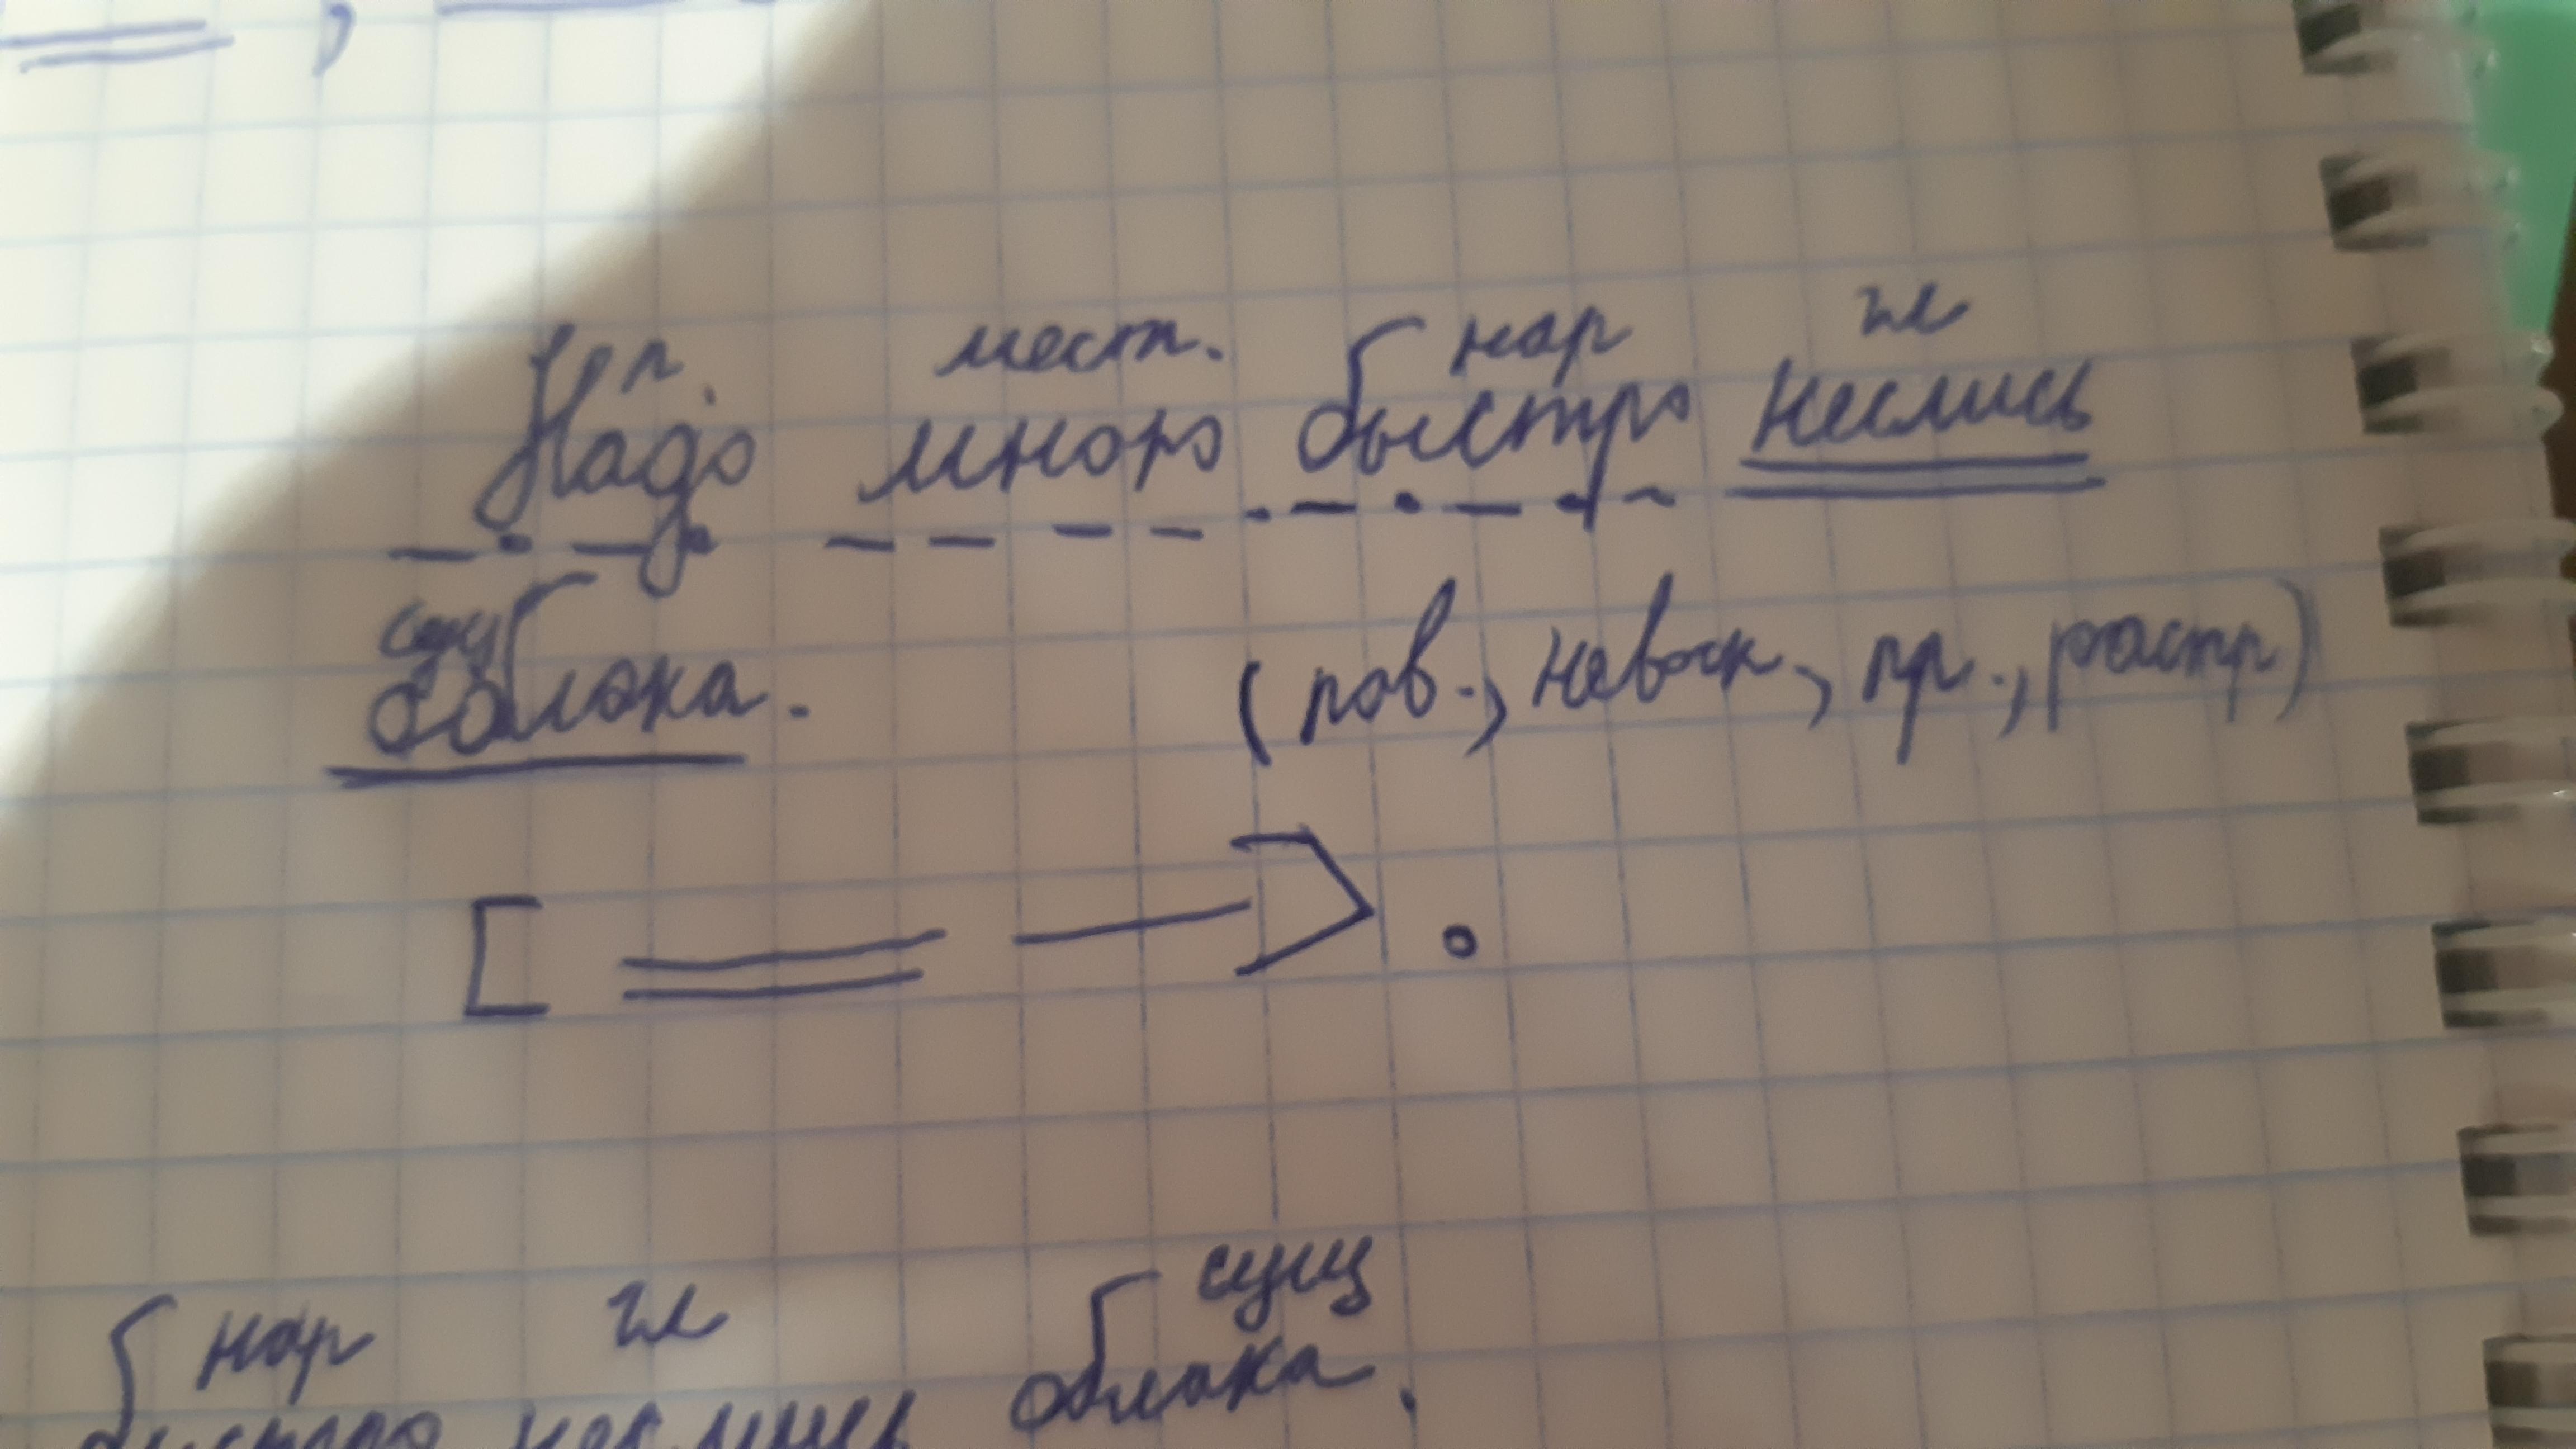 пр. мест. нар гл
Надо мною быстро неслись
сущ
облака. (пов., невоск, пр., распр)
нар гл сущ
быстро неслись облака.